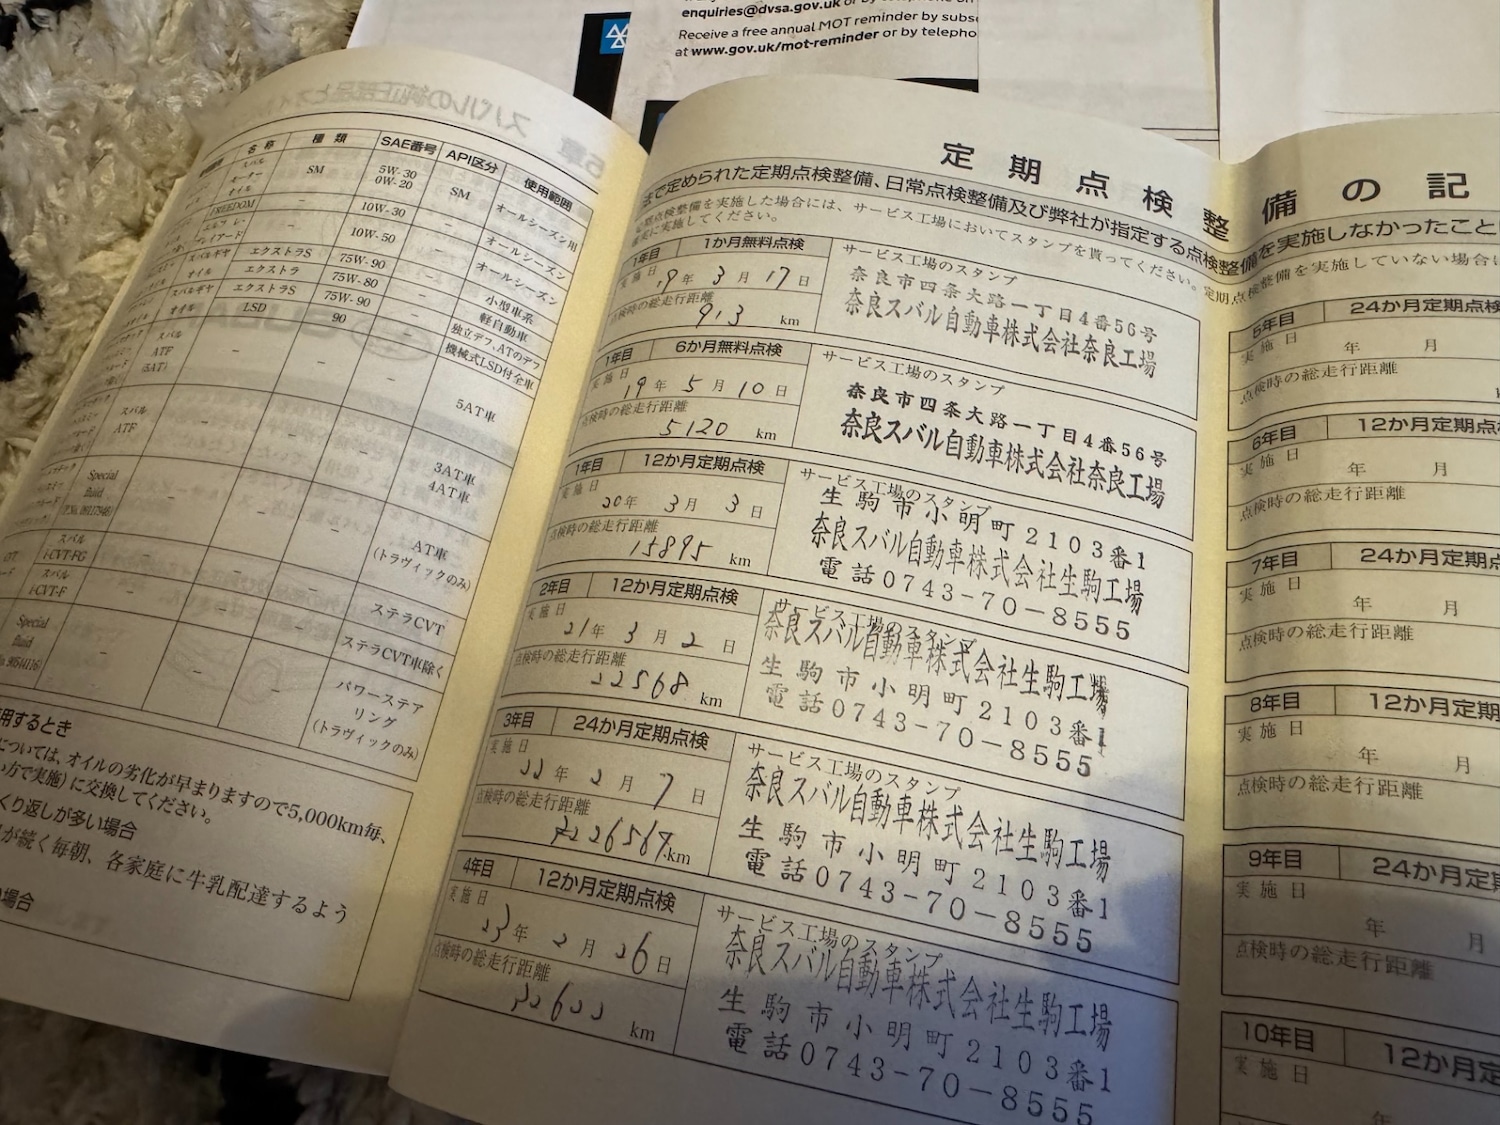 enquiries@dvsa.gov.uk or by telephone on
Receive a free annual MOT reminder by subs
at www.gov.uk/mot-reminder or by telepho
スバルの純正部品とオイル
5章
名称 種類 SAE番号 API区分 使用範囲
スバル モーター オイル SM 5W-30 0W-20 SM オールシーズン用
FREEDOM - 10W-30 - オールシーズン
- 10W-50 - オールシーズン
スバルギヤ オイル エクストラS 75W-90 - 小型車系
エクストラ 75W-80 - 軽自動車
スバルギヤ オイル エクストラS 75W-90 - 独立デフ、ATのデフ
LSD 90 - 機械式LSD付全車
スバル ATF (5AT) - - - 5AT車
スバル ATF - - - 3AT車 4AT車
Special fluid - - - AT車 (トラヴィックのみ)
スバル i-CVT-FG - - - ステラCVT
スバル i-CVT-F - - - ステラCVT車除く
Special fluid - - - パワーステアリング (トラヴィックのみ)
用するとき
については、オイルの劣化が早まりますので5,000km毎、
い方で実施)に交換してください。
くり返しが多い場合
が続く毎朝、各家庭に牛乳配達するよう
場合
定期点検整備の記
法で定められた定期点検整備、日常点検整備及び弊社が指定する点検整備を実施しなかったこと
定期点検整備を実施した場合には、サービス工場においてスタンプを貰ってください。定期点検整備を実施していない場合に
確実に実施してください。
1年目 1か月無料点検
実施日
19年 3月 17日
点検時の総走行距離
913 km
サービス工場のスタンプ
奈良市四条大路一丁目4番56号
奈良スバル自動車株式会社奈良工場
1年目 6か月無料点検
実施日
19年 5月 10日
点検時の総走行距離
5120 km
サービス工場のスタンプ
奈良市四条大路一丁目4番56号
奈良スバル自動車株式会社奈良工場
1年目 12か月定期点検
実施日
20年 3月 3日
点検時の総走行距離
15895 km
サービス工場のスタンプ
生駒市小明町2103番1
奈良スバル自動車株式会社生駒工場
電話0743-70-8555
2年目 12か月定期点検
実施日
21年 3月 2日
点検時の総走行距離
22568 km
サービス工場のスタンプ
奈良スバル自動車株式会社生駒工場
生駒市小明町2103番1
電話0743-70-8555
3年目 24か月定期点検
実施日
22年 2月 7日
点検時の総走行距離
km
サービス工場のスタンプ
奈良スバル自動車株式会社生駒工場
生駒市小明町2103番1
電話0743-70-8555
4年目 12か月定期点検
実施日
23年 2月 26日
点検時の総走行距離
km
サービス工場のスタンプ
奈良スバル自動車株式会社生駒工場
生駒市小明町2103番1
電話0743-70-8555
5年目 24か月定期点検
実施日
年 月
点検時の総走行距離
6年目 12か月定期点
実施日
年 月
点検時の総走行距離
7年目 24か月定期点
実施日
年 月
点検時の総走行距離
8年目 12か月定期
実施日
年 月
点検時の総走行距離
9年目 24か月定期
実施日
年 月
点検時の総走行距離
10年目 12か月定
実施日
年